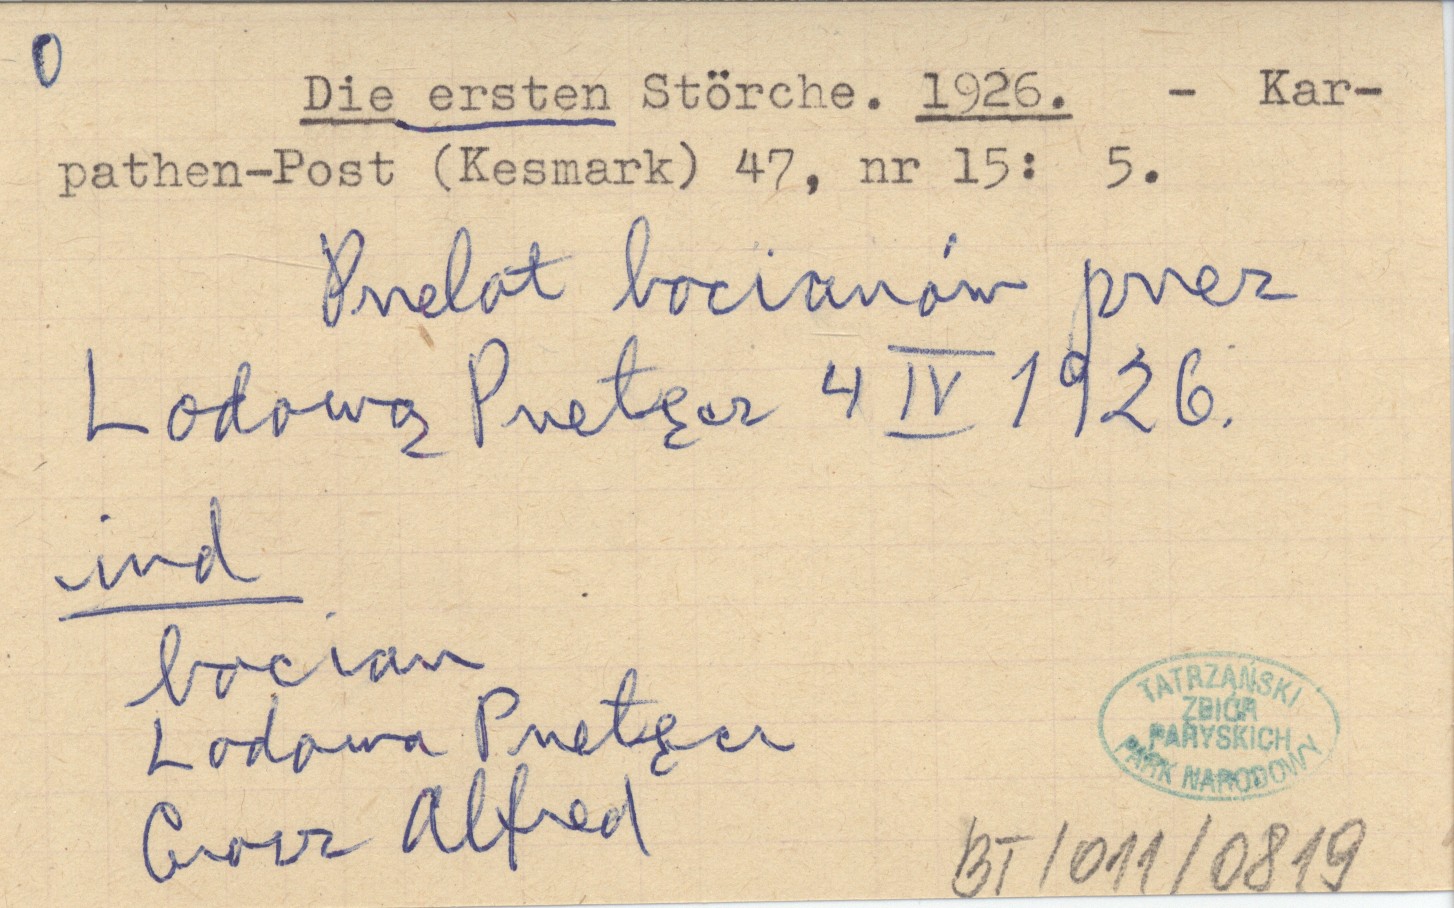 0
Die ersten Störche. 1926. - Kar-
pathen-Post (Kesmark) 47, nr 15: 5.
Przelot bocianów przez
Lodową Przełęcz 4 IV 1926.
ind
bocian
Lodowa Przełęcz
Grosz Alfred
TATRZAŃSKI
ZBIÓR
PARYSKICH
PARK NARODOWY
BT/011/0819